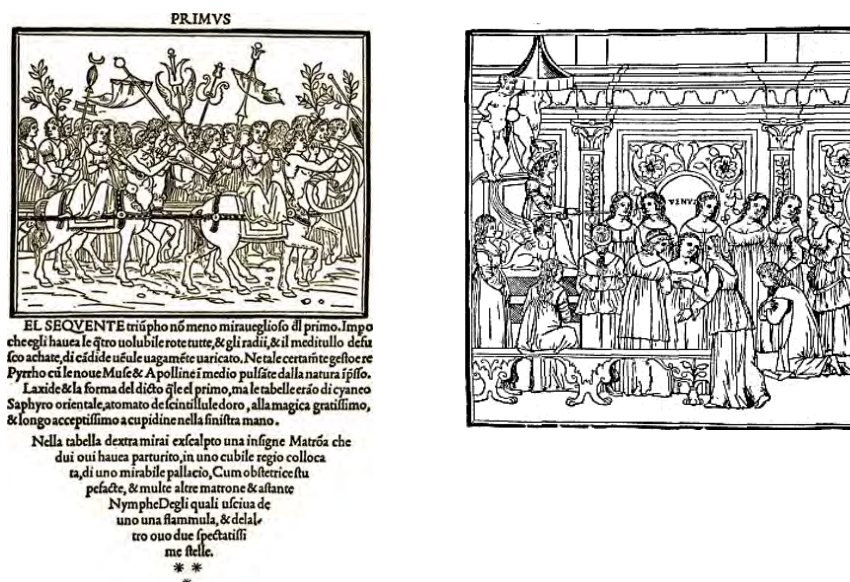 PRIMVS
EL SEQVENTE triũpho nõ meno miraueglioso dl primo. Impo
che egli hauea le q̃tro uolubile rote tutte, & gli radii, & il meditullo defu
sco achate, di cãdide uẽule uagamẽte uaricato. Ne tale certam̃te gestoe re
Pyrrho cũ le noue Muse & Apolline ĩ medio pulsãte dalla natura ĩp̃sso.
Laxide & la forma del dicto q̃le el primo, ma le tabelle erão di cyaneo
Saphyro orientale, atomato de scintillule doro, alla magica gratissimo,
& longo acceptissimo a cupidine nella sinistra mano.
Nella tabella dextra mirai exscalpto una insigne Matrõa che
dui oui hauea parturito, in uno cubile regio colloca
ta, di uno mirabile pallacio, Cum obstetrice stu
pefacte, & multe altre matrone & astante
Nymphe Degli quali usciua de
uno una flammula, & delal-
tro ouo due spectatissi
me stelle.
* *
*
VENVS